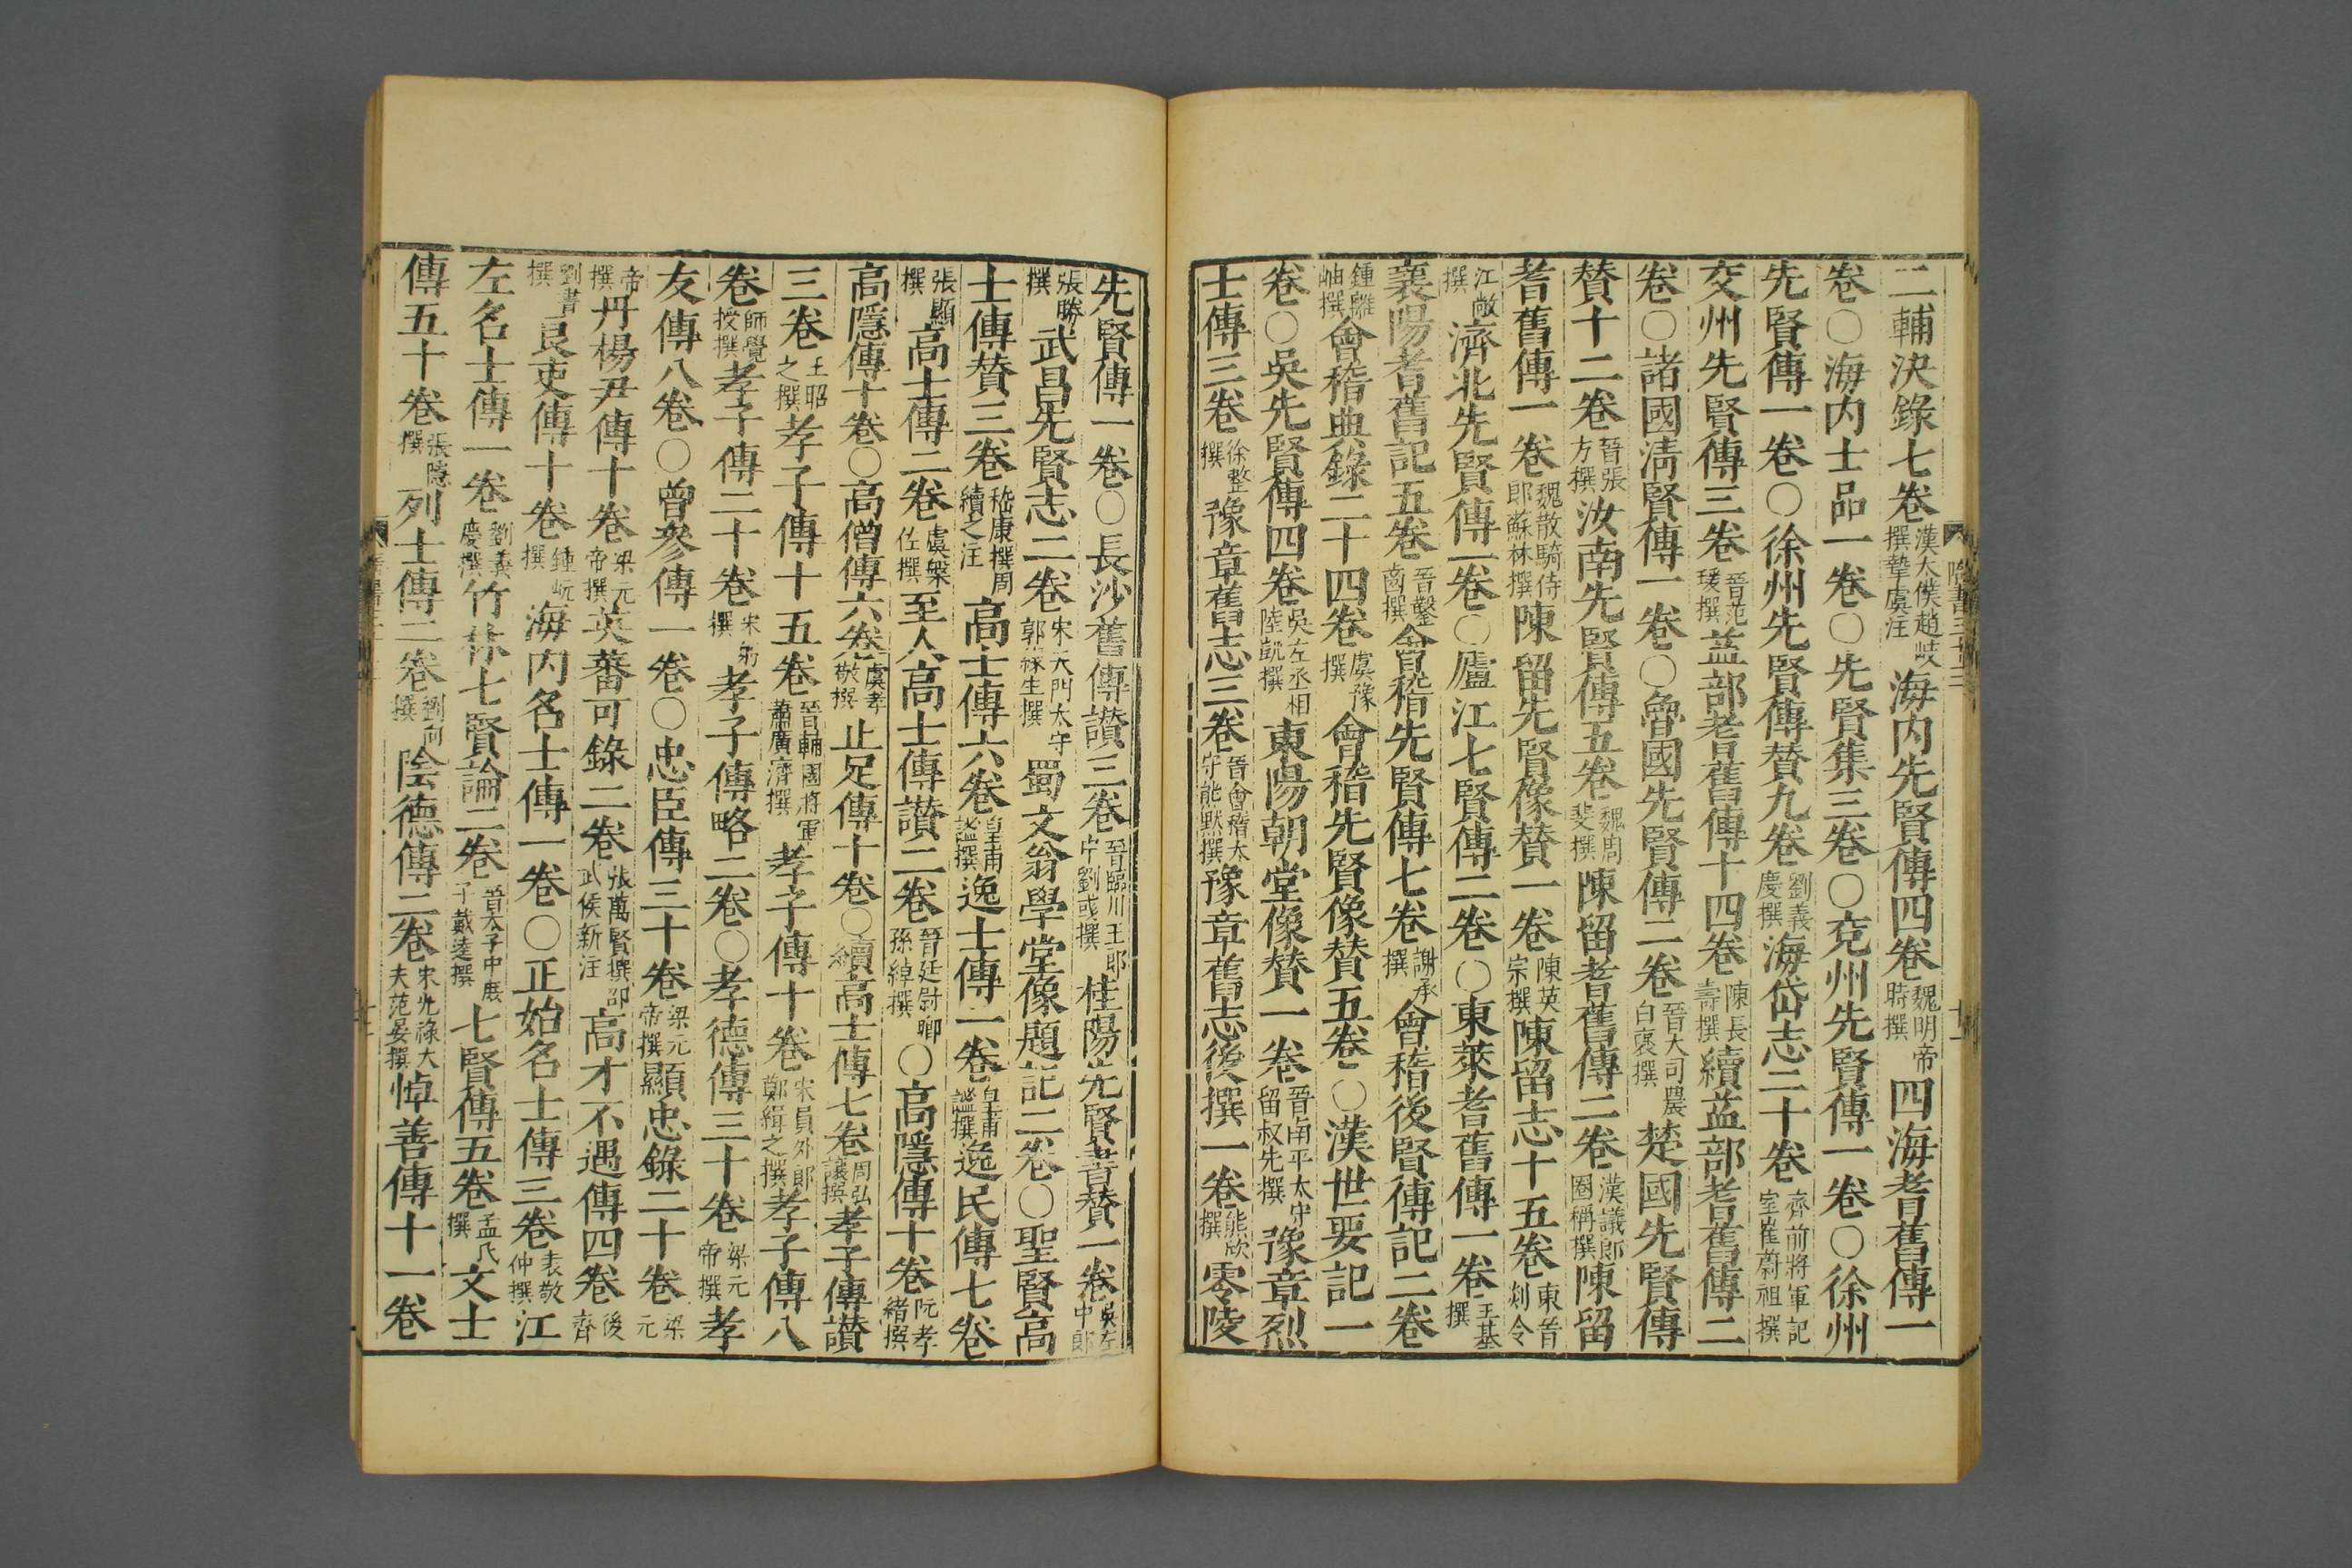 三輔決錄七卷漢太僕趙岐撰摯虞注海内先賢傳四卷魏明帝時撰四海耆舊傳一
卷○海内士品一卷○先賢集三卷○兗州先賢傳一卷○徐州
先賢傳一卷○徐州先賢傳贊九卷劉義慶撰海岱志二十卷齊前將軍記室崔蔚祖撰
交州先賢傳三卷晉范瑗撰益部耆舊傳十四卷陳長壽撰續益部耆舊傳二
卷○諸國清賢傳一卷○魯國先賢傳二卷晉大司農白褒撰楚國先賢傳
贊十二卷晉張方撰汝南先賢傳五卷魏周斐撰陳留耆舊傳二卷漢議郎圈稱撰陳留
耆舊傳一卷魏散騎侍郎蘇林撰陳留先賢像贊一卷陳英宗撰陳留志十五卷東晉剡令
江敞撰濟北先賢傳一卷○廬江七賢傳二卷○東萊耆舊傳一卷王基撰
襄陽耆舊記五卷晉鑿齒撰會稽先賢傳七卷謝承撰會稽後賢傳記二卷
鍾離岫撰會稽典錄二十四卷虞豫撰會稽先賢像贊五卷○漢世要記一
卷○吳先賢傳四卷吳左丞相陸凱撰東陽朝堂像贊一卷晉南平太守留叔先撰豫章烈
士傳三卷徐整撰豫章舊志三卷晉會稽太守熊默撰豫章舊志後撰一卷熊欣撰零陵
先賢傳一卷○長沙舊傳讃三卷晉臨川王郎中劉彧撰桂陽先賢書贊一卷吳左中郎
張勝撰武昌先賢志二卷宋天門太守郭緣生撰蜀文翁學堂像題記二卷○聖賢高
士傳贊三卷嵇康撰周續之注高士傳六卷皇甫謐撰逸士傳一卷皇甫謐撰逸民傳七卷
張顯撰高士傳二卷虞槃佐撰至人高士傳讃二卷晉廷尉卿孫綽撰○高隱傳十卷阮孝緒撰
高隱傳十卷○高僧傳六卷虞孝敬撰止足傳十卷○續高士傳七卷周弘讓撰孝子傳讃
三卷王昭之撰孝子傳十五卷晉輔國將軍蕭廣濟撰孝子傳十卷宋員外郎鄭緝之撰孝子傳八
卷師覺授撰孝子傳二十卷宋躬撰孝子傳略二卷○孝德傳三十卷梁元帝撰孝
友傳八卷○曾參傳一卷○忠臣傳三十卷梁元帝撰顯忠錄二十卷梁元
帝撰丹楊尹傳十卷梁元帝撰英蕃可錄二卷張萬賢撰邵武侯新注高才不遇傳四卷後齊
劉晝撰良吏傳十卷鍾岏撰海内名士傳一卷○正始名士傳三卷袁敬仲撰江
左名士傳一卷劉義慶撰竹林七賢論二卷晉太子中庶子戴逵撰七賢傳五卷孟氏撰文士
傳五十卷張隱撰列士傳二卷劉向撰陰德傳二卷宋光祿大夫范晏撰悼善傳十一卷